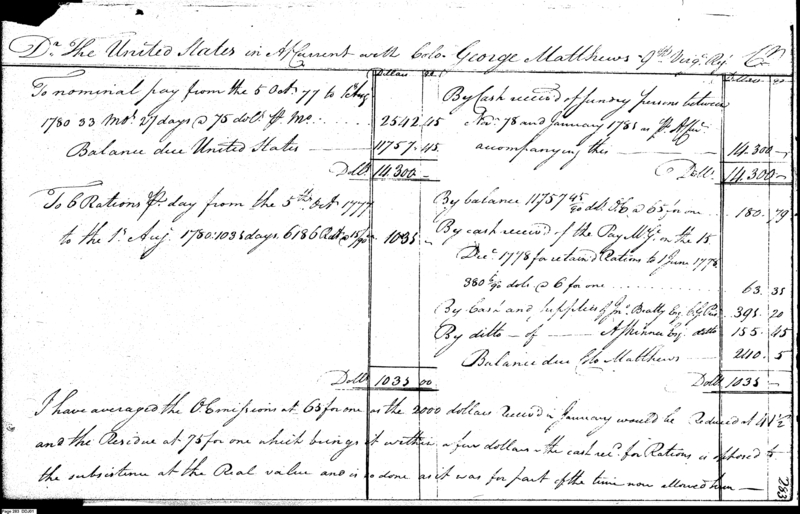 Dr. The United States in A/Current with Colo. George Matthews 9th Virga. Regt. Cr.
Dollars 90
To nominal pay from the 5 Octr. 77 to 1st Augt.
1780 33 Mos. 27 days @ 75 dolls. pr. Mo. 2542. 45
Balance due United States 11757. 45
Dolls. 14.300
To 6 Rations pr. day from the 5th Octr. 1777
to the 1st. Aug. 1780. 1031 days. 6186 Rats. @ 15/90 1031
Dolls. 1031 00
Dollars 90
By Cash received of sundry persons between
Novr. 78 and January 1781 as pr.
accompanying this 14.300
Dolls. 14.300
By balance 11757 45/90 dolls. @ 65 for one 180. 79
By cash received of the Pay Mr. on the 15
Decr. 1778 for retained Rations to 1 June 1778
380 /90 dols @ 6 for one 63. 35
By Cash and supplies of Jno. Beatty Esq. 391. 20
By ditto of A Skinner Esq. ditto 155. 45
Balance due Colo Matthews 240. 5
Dolls. 1031
I have averaged the Emissions at 65 for one as the 2000 dollars received in January would be reduced at 41 1/2
and the Residue at 75 for one which brings it within a few dollars the cash recd. for Rations is opposed to
the subsistence at the Real value and is so done as it was for part of the time now allowed him
283
Page 283 DDJ01